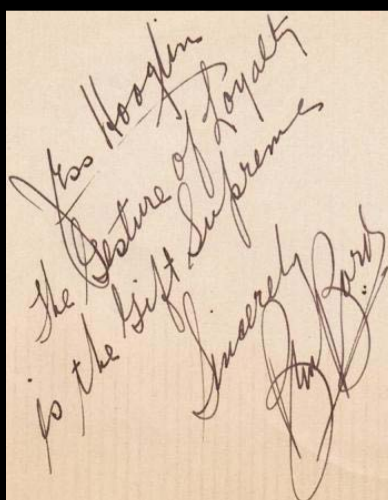 Jess Hooglin
The Gesture of Loyalty
is the Gift Supreme
Sincerely